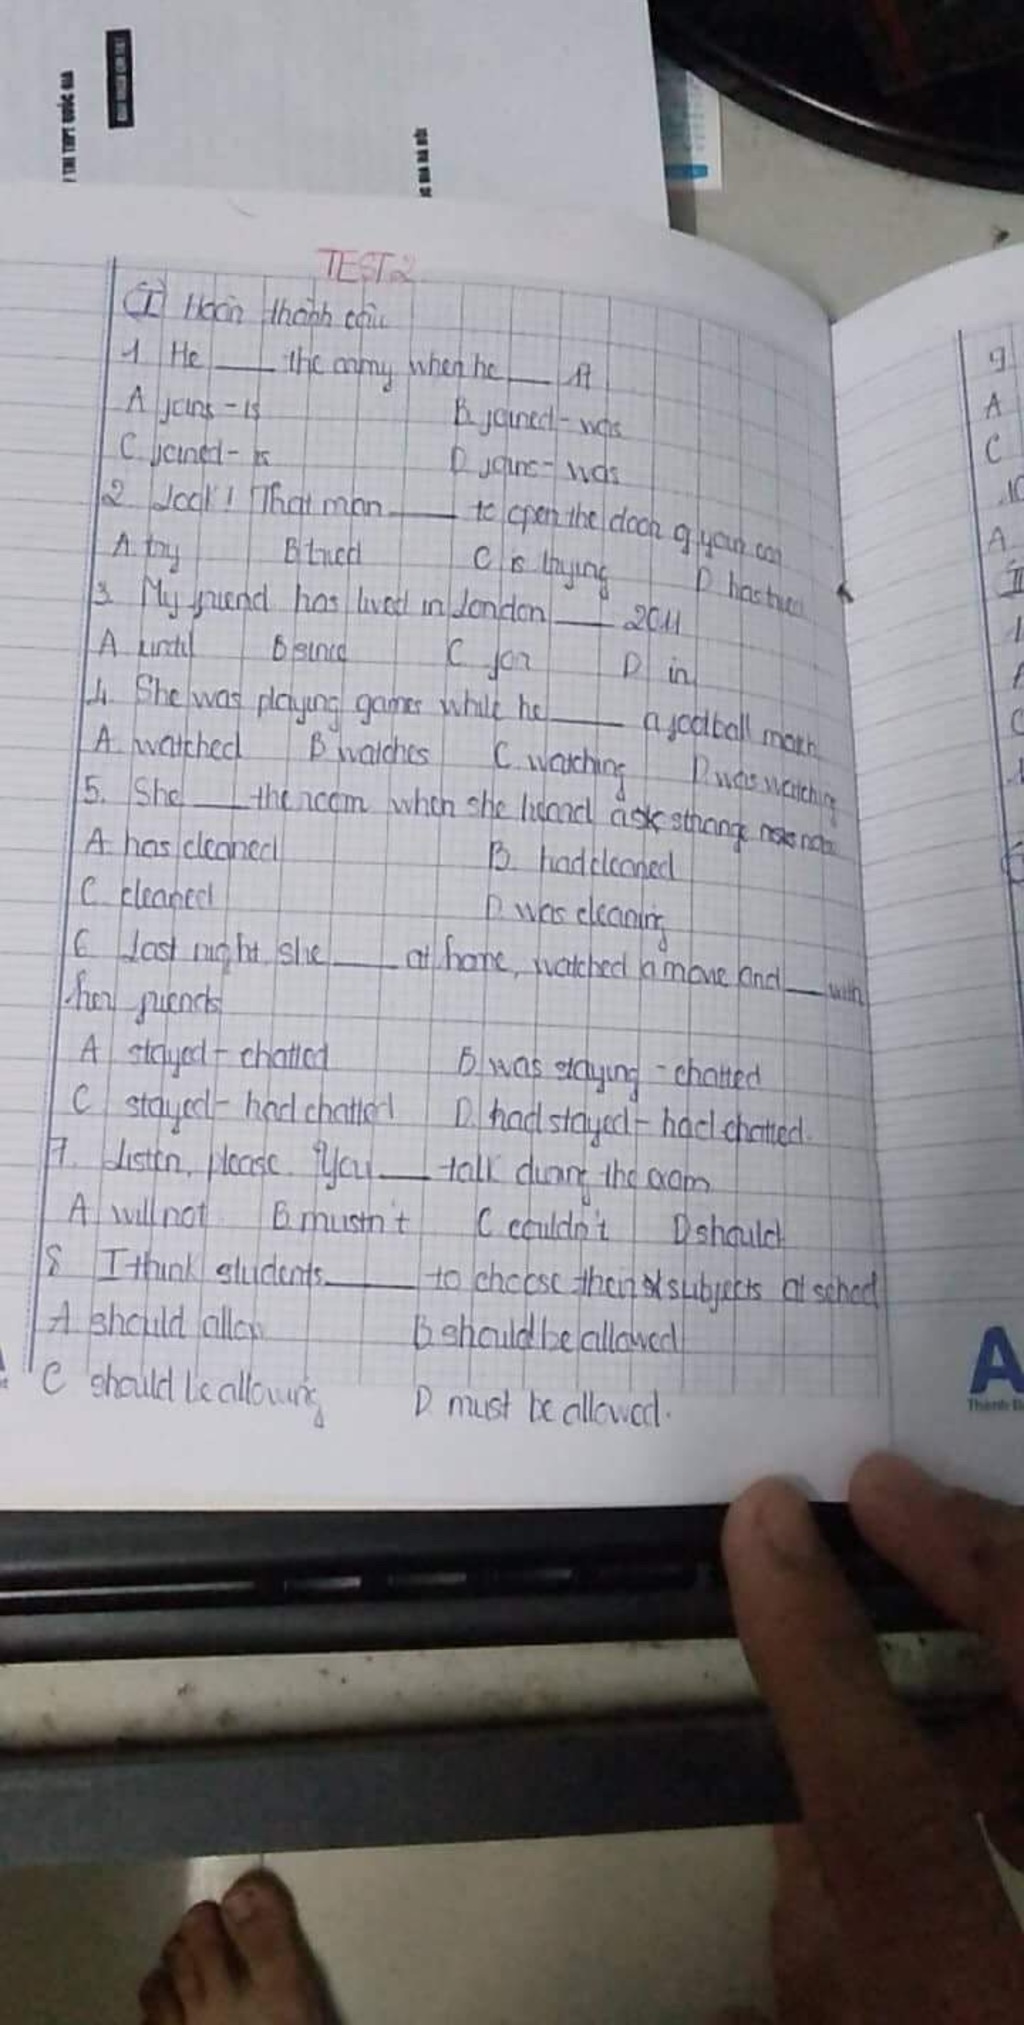 I THI THPT QUỐC GIA
TEST 2
I Hoàn thành câu
1 He ___ the army when he ___ 17
A joins - is B joined - was
C joined - is D joins - was
2 Look! That man ___ to open the door of your car
A try B tried C is trying D has tried
3. My friend has lived in London ___ 2011
A until B since C for D in
4. She was playing games while he ___ a football match
A watched B watches C. watching D. was watching
5. She ___ the room when she heard a strange
A has cleaned B. had cleaned
C. cleaned D. was cleaning
6 Last night she ___ at home, watched a movie and ___ with
her friends
A stayed - chatted B was staying - chatted
C stayed - had chatted D. had stayed - had chatted.
7. Listen, please. You ___ talk during the exam
A will not B mustn't C couldn't D should
8 I think students ___ to choose their subjects at school
A should allow B should be allowed
C should be allowing D. must be allowed.
9
A
C
10
A
II
1
A
C
A
Thành